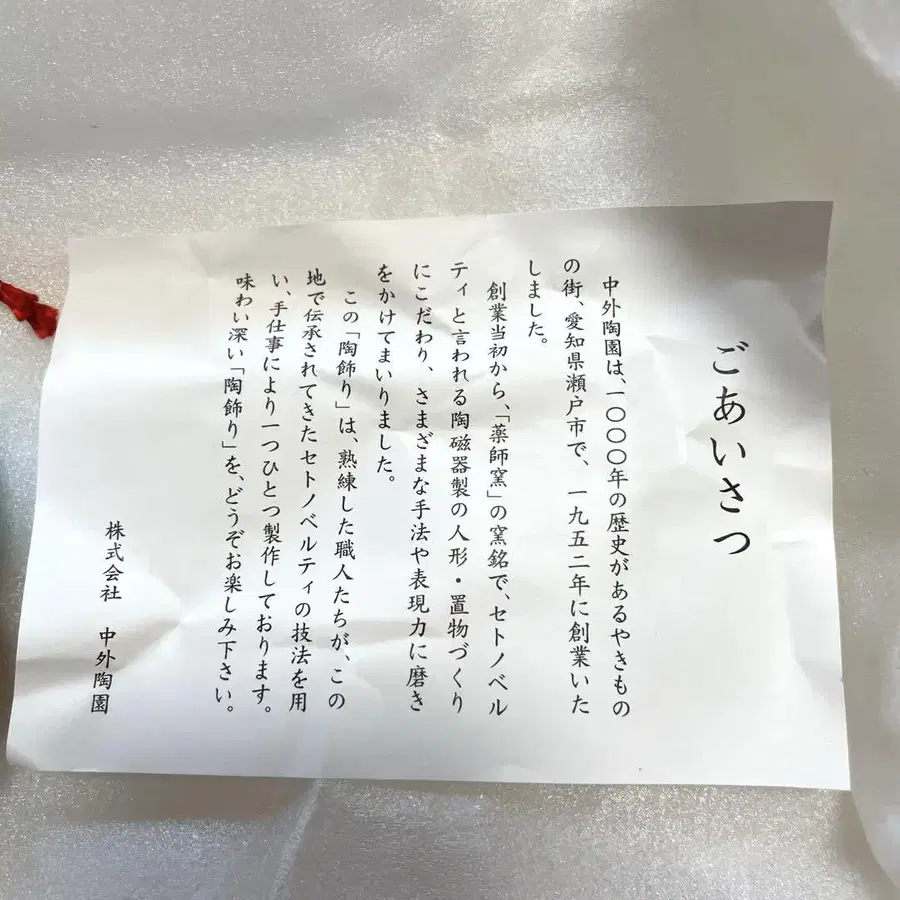 ごあいさつ
中外陶園は、一〇〇〇年の歴史があるやきもの
の街、愛知県瀬戸市で、一九五二年に創業いた
しました。
創業当初から、「薬師窯」の窯銘で、セトノベル
ティと言われる陶磁器製の人形・置物づくり
にこだわり、さまざまな手法や表現力に磨き
をかけてまいりました。
この「陶飾り」は、熟練した職人たちが、この
地で伝承されてきたセトノベルティの技法を用
い、手仕事により一つひとつ製作しております。
味わい深い「陶飾り」を、どうぞお楽しみ下さい。
株式会社 中外陶園